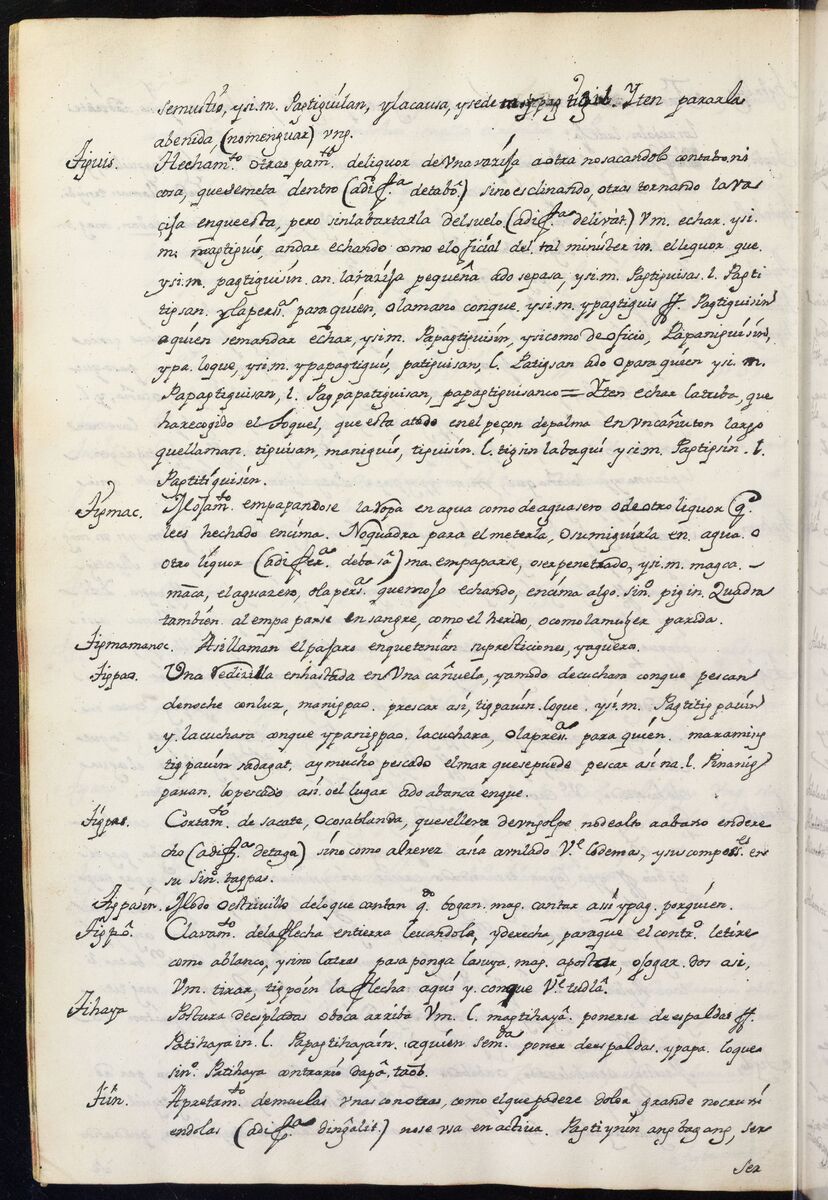 semustio, ysi.m. Pagtiguilan, ylacausa, ysede Yten pararla
abenida, (nomenguar) vng.
Tiguis. Hechamto. otraspamto. deliquor devnavasija aotra nosacandolo contabo, ni
cosa, quesemeta dentro (adifa. detabo.) sinoesclinando, otrastornando lava
çija enqueesta, pero sinlabantarla delsuelo (adifa. delivat.) Vm. echar. ysi.
m. magtiguis, andar echando como elo ficial del tal minister in. elliquor que.
ysi.m. pagtiguisin. an. lavasija pequeña ado sepasa, ysi.m. Pagtiguisas. l. Pagti
tigsan. ylapersa. paraquien, olamano conque. ysi.m. ypagtiguis ff. Pagtiguisin
aquien semandar echar, ysi.m. Papagtiguisin, ysicomo deoficio, Papaniguisin,
ypa. loque, ysi.m. ypapagtiguis, patiguisan, l. Patigsan ado oparaquien ysi.m.
Papagtiguisan, l. Pagpapatiguisan, papagtiguisanco = Yten echar latuba, que
harecogido el Soquel, que esta atado enel peçon depalma en vncañuton largo
quellaman. tiguisan, maniguis, tiguisin. l. tigsin labagui ysi.m. Pagtigsin. l.
Pagtitiguisin.
Tigmac. Mojamto. empapandose laropa en agua como deaguasero odeotro liquor (q.
lees hechado encima. Noquadra para el meterla, osumiguirla en agua o
otro liquor (adifera. debasa) ma. empaparse, oserpenetrado, ysi.m. magca.-
maca, el aguazero, olapersa. quemojo echando, encima algo. sino. pigin. Quadra
tambien al empaparse en sangre, como el herido, ocomolamuger parida.
Tigmamanoc. Asillaman el pajaro enquetenian supresticiones, yaguero.
Tigpao. Una redizilla enhastada en vna cañuela, yamodo decuchara conque pescan
denoche conluz, manigpao. prescar asi, tigpauin. loque. ysi.m. Pagtitigpauin
y. lacuchara conque ypanigpao. lacuchara, olapresa. para quien. maraming
tigpauin sadagat. aymucho pescado elmar quesepuede pescar asi na. l. Pinanig
pauan. lopescado asi. oel lugar ado abança enque.
Tigpas. Cortamto. de sacate, ocosablanda, queselleva devngolpe nodealto aabaxo endere
cho (adifa. detaga) sino como alrevez asia avnlado Ve. lodemas, ysuscompeses. en
su sino. tagpas.
Tigpasin. Modo oestrivillo deloque cantan qdo. bogan. mag. cantar asi ypag. porquien.
Tigpo. Clavamto. delaflecha entierra levandola, yderecha, paraque el contro. letire
como ablanco, ysino latras pasa ponga lasuya, mag. apostar, ojogar. dos asi,
Vm. tirar, tigpoin la flecha aqui y. conque Ve. tudla.
Tihaya Postura deespladas oboca arriba Vm. l. magtihaya. ponerse deespaldas ff.
Patihayain. l. Papagtihayain. aquien semda. poner deespaldas. ypapa. loque
sino. Patihaya contrario dapa, taob.
Tiin. Apretamto. demuelas vnas conotras, como elquepadeze dolor grande nocruxi
endolas (adifa. dingalit.) nose vsa enactiva. Pagtiynin ang bagang, ser
ser